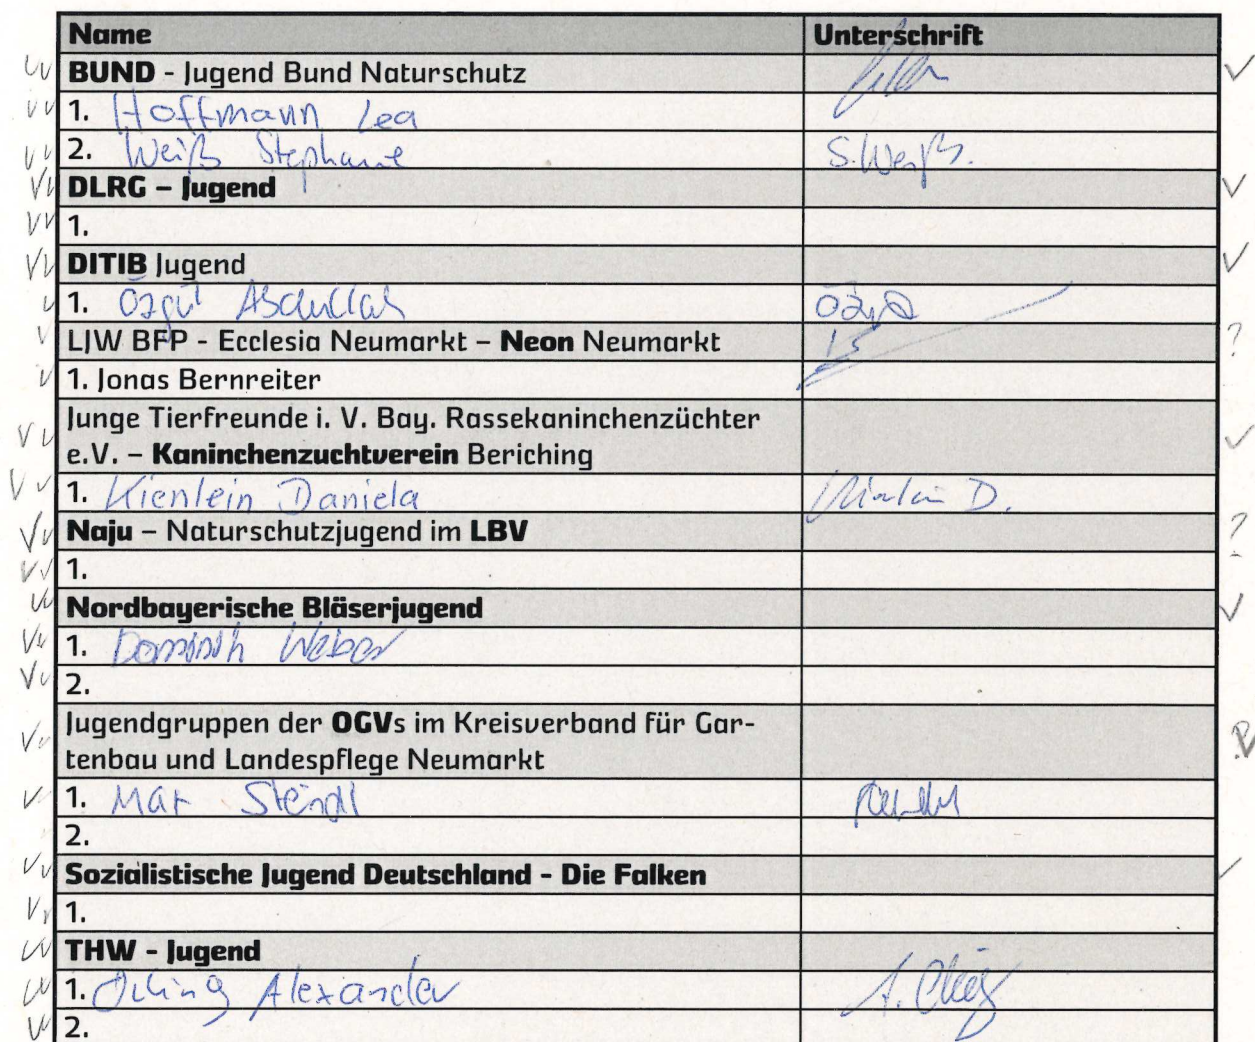 Name Unterschrift
BUND - Jugend Bund Naturschutz
1. Hoffmann Lea
2. Weiß Stephanie S.Weiß.
DLRG – Jugend
1.
DITIB Jugend
1. Özgül Abdullah
LJW BFP - Ecclesia Neumarkt – Neon Neumarkt ?
1. Jonas Bernreiter
Junge Tierfreunde i. V. Bay. Rassekaninchenzüchter
e.V. – Kaninchenzuchtverein Beriching
1. Kienlein Daniela Kienlein D.
Naju – Naturschutzjugend im LBV ?
1.
Nordbayerische Bläserjugend
1. Dominik Weber
2.
Jugendgruppen der OGVs im Kreisverband für Gar-
tenbau und Landespflege Neumarkt
1. Max Steindl
2.
Sozialistische Jugend Deutschland - Die Falken
1.
THW - Jugend
1. Alexander
2.